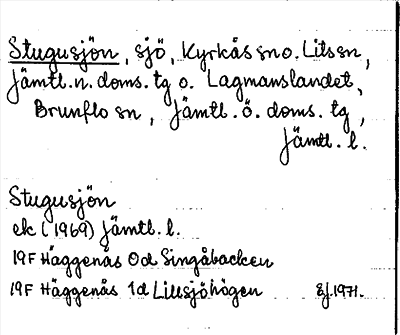 Stugusjön, sjö, Kyrkås sn o. Lits sn,
Jämtl. n. doms. tg o. Lagmanslandet,
Brunflo sn, Jämtl. ö. doms. tg,
Jämtl. l.
Stugusjön
ek (1969) Jämtl. l.
19F Häggenås 0d Singåbacken
19F Häggenås 1d Lillsjöhögen 8/1971.